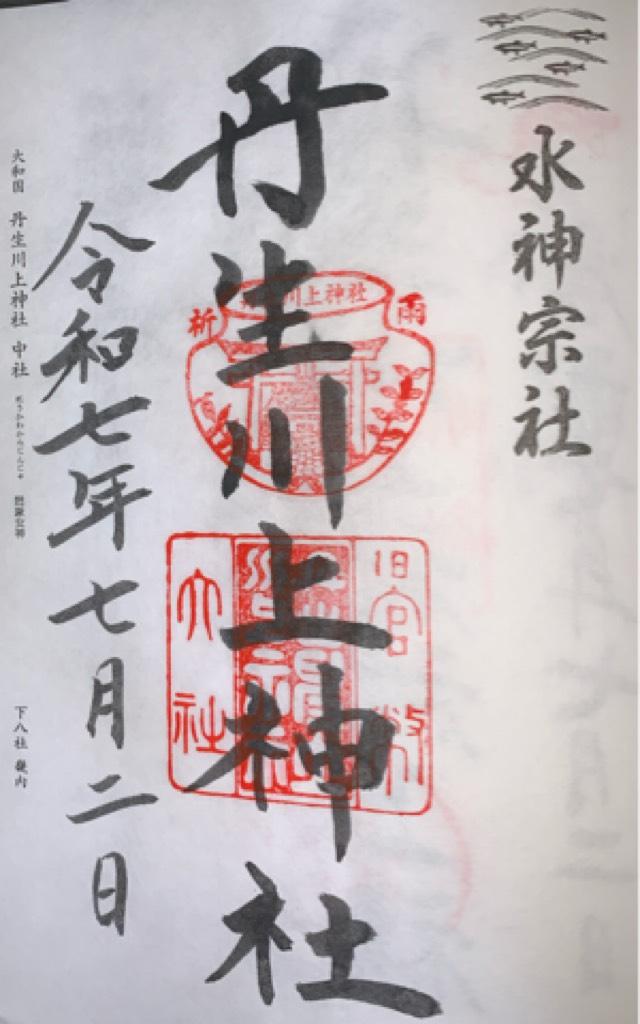 水神宗社
丹生川上神社
丹生川上神社
祈雨
旧官幣
大社
令和七年七月二日
大和国 丹生川上神社 中社
下八社 畿内